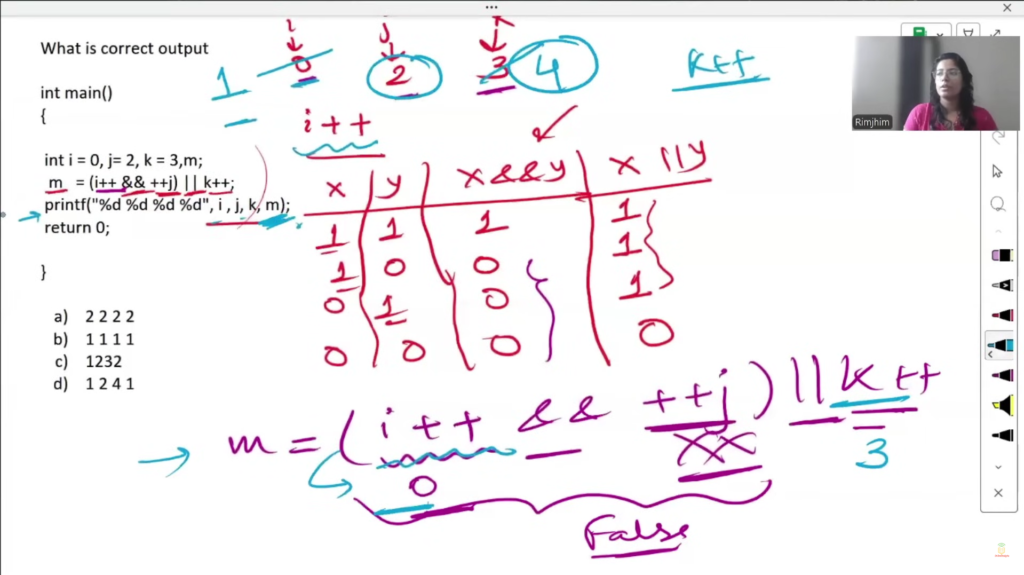 i j k
What is correct output
0 2 3 4 k++
1
int main()
{
i++
int i = 0, j= 2, k = 3,m;
m = (i++ && ++j) || k++;
printf("%d %d %d %d", i , j, k, m);
return 0;
}
a) 2 2 2 2
b) 1 1 1 1
c) 1232
d) 1 2 4 1
x y x&&y x||y
1 1 1 1
1 0 0 1
0 1 0 1
0 0 0 0
m = (i++ && ++j) || k++
0 xx 3
False
Rimjhim